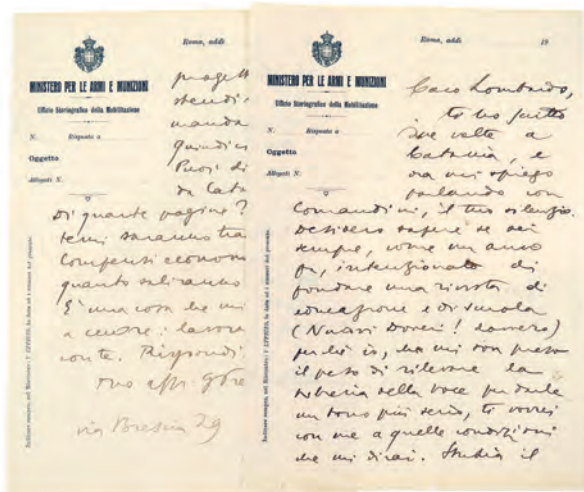 Roma, addì
MINISTERO PER LE ARMI E MUNIZIONI
Ufficio Storiografico della Mobilitazione
N. Risposta a
Oggetto
Allegati N.
progett
stendi
manda
quindici
Puoi di
da Cata
Di quante pagine?
temi saranno tra
Compensi econom
quanto saliranno
È una cosa che mi
a cuore: lavora
con te. Rispondi
tuo aff.
via Brescia 29
Roma, addì 19
MINISTERO PER LE ARMI E MUNIZIONI
Ufficio Storiografico della Mobilitazione
N. Risposta a
Oggetto
Allegati N.
Caro Lombardo,
ti ho scritto
due volte a
Catania, e
ora mi spiego
parlando con
Comandini, il tuo silenzio.
Desidero sapere se sei
sempre, come un anno
fa, intenzionato di
fondare una rivista di
educazione e di scuola
(Nuovi Doveri! davvero)
perché io, che mi son preso
il peso di rilevare la
Libreria della Voce per darle
un tono più serio, ti vorrei
con me a quelle condizioni
che mi dirai. Studia il